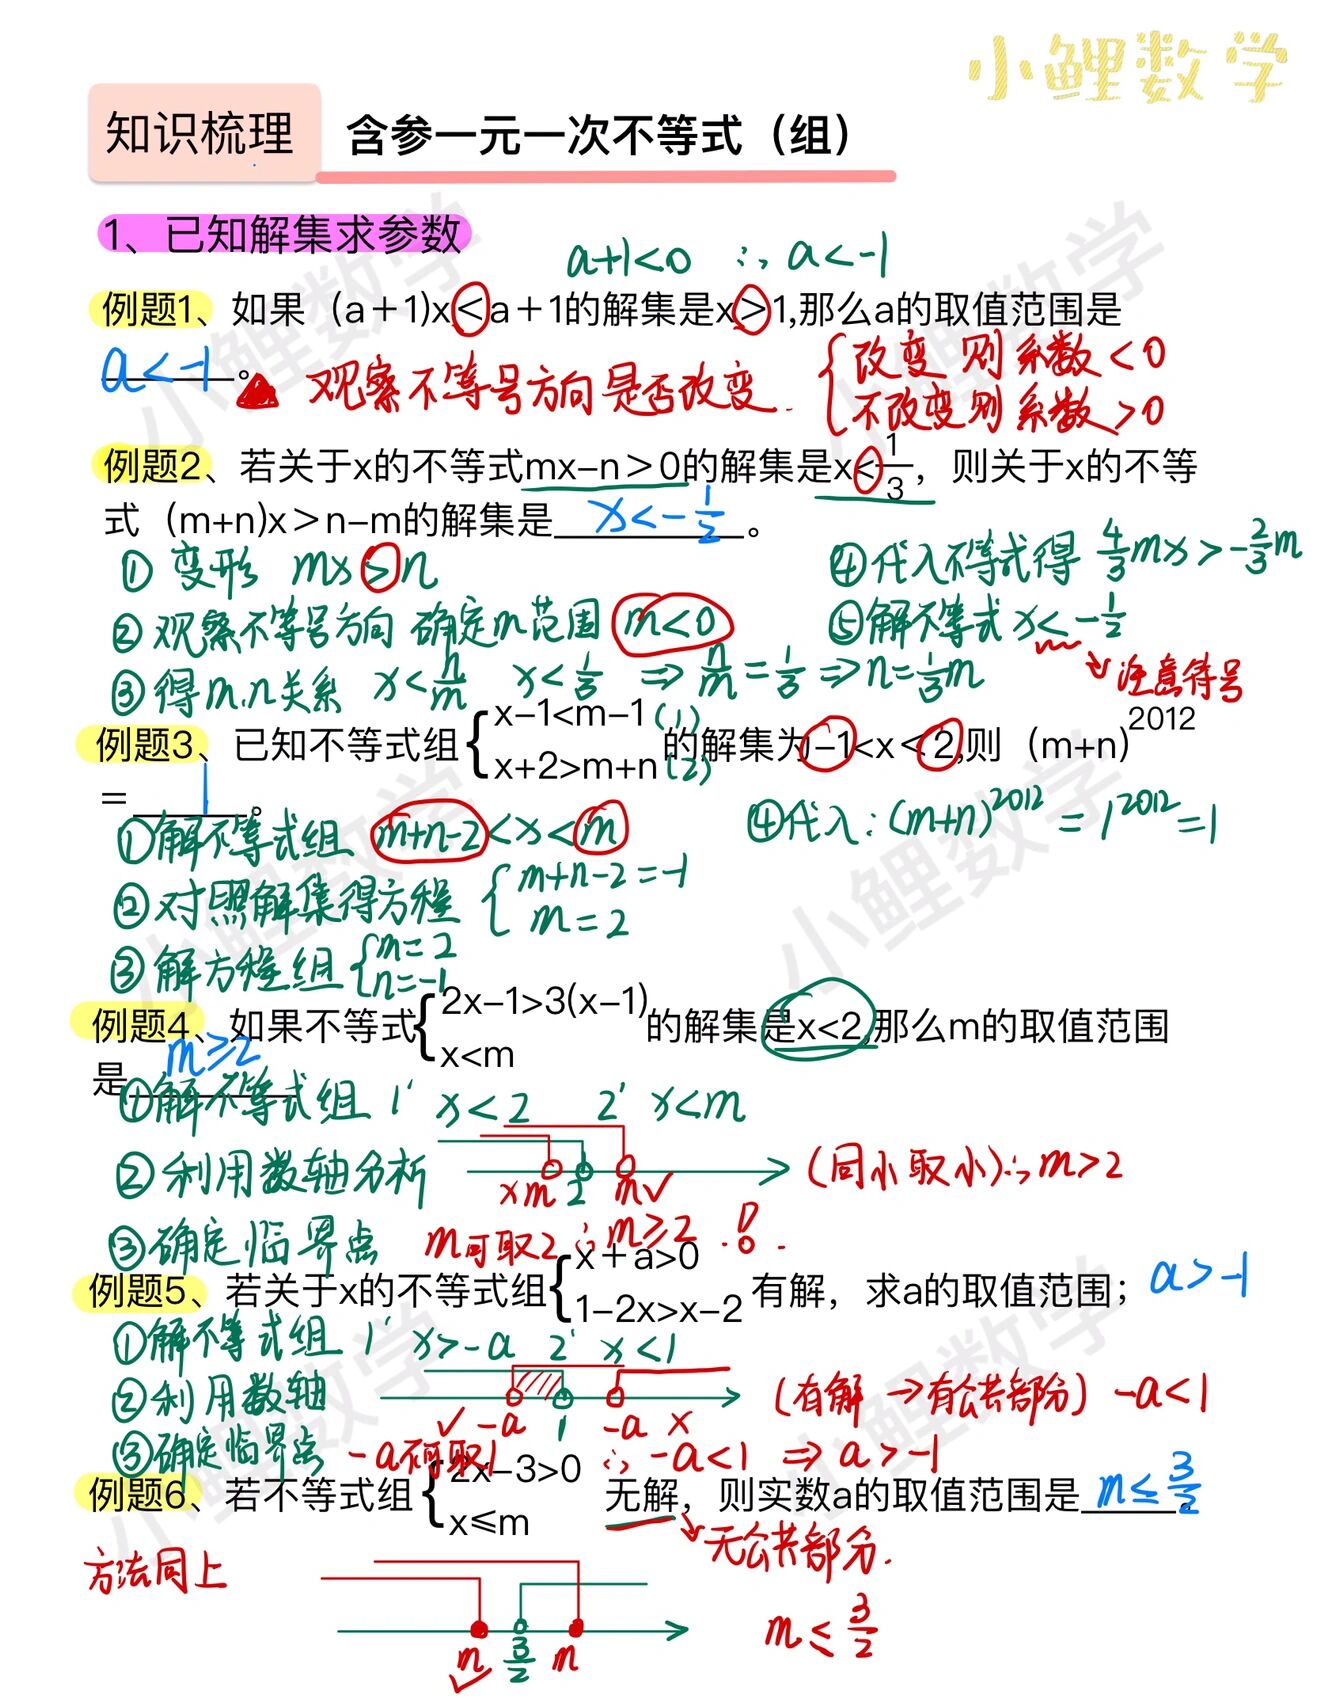 小鲤数学
知识梳理 含参一元一次不等式（组）
1、已知解集求参数
a+1<0 ∴ a<-1
例题1、如果（a＋1)x＜a＋1的解集是x＞1,那么a的取值范围是
a<-1。
观察不等号方向是否改变. { 改变 则 系数<0
不改变则 系数>0
例题2、若关于x的不等式mx−n＞0的解集是x<1/3，则关于x的不等
式（m+n)x＞n−m的解集是 x<-1/2 。
① 变形 mx>n
② 观察不等号方向 确定m范围 m<0
③ 得m,n关系 x<n/m x<1/3 ⇒ n/m=1/3 ⇒ n=1/3m
④代入不等式得 4/3mx>-2/3m
⑤解不等式 x<-1/2
注意符号
例题3、已知不等式组{x−1<m−1 (1)
x+2>m+n (2)
的解集为−1<x＜2,则（m+n)^2012
＝ 1 。
①解不等式组 m+n-2<x<m
②对照解集得方程 { m+n-2=-1
m=2
③解方程组 { m=2
n=-1
④代入：(m+n)^2012=1^2012=1
例题4、如果不等式{2x−1>3(x−1)
x<m
的解集是x<2,那么m的取值范围
是 m≥2
①解不等式组 1' x<2 2' x<m
②利用数轴分析 × m 2 m ✓ (同小取小)∴m>2
③确定临界点 m可取2 ∴m≥2 !
例题5、若关于x的不等式组{x＋a>0
1−2x>x−2
有解，求a的取值范围； a>-1
①解不等式组 1' x>-a 2' x<1
②利用数轴 ✓ -a 1 -a × (有解→有公共部分) -a<1
③确定临界点 -a不可取1 ∴ -a<1 ⇒ a>-1
例题6、若不等式组{2x−3>0
x≤m
无解，则实数a的取值范围是 m≤3/2 。
无公共部分.
方法同上
m ✓ 3/2 m
m≤3/2